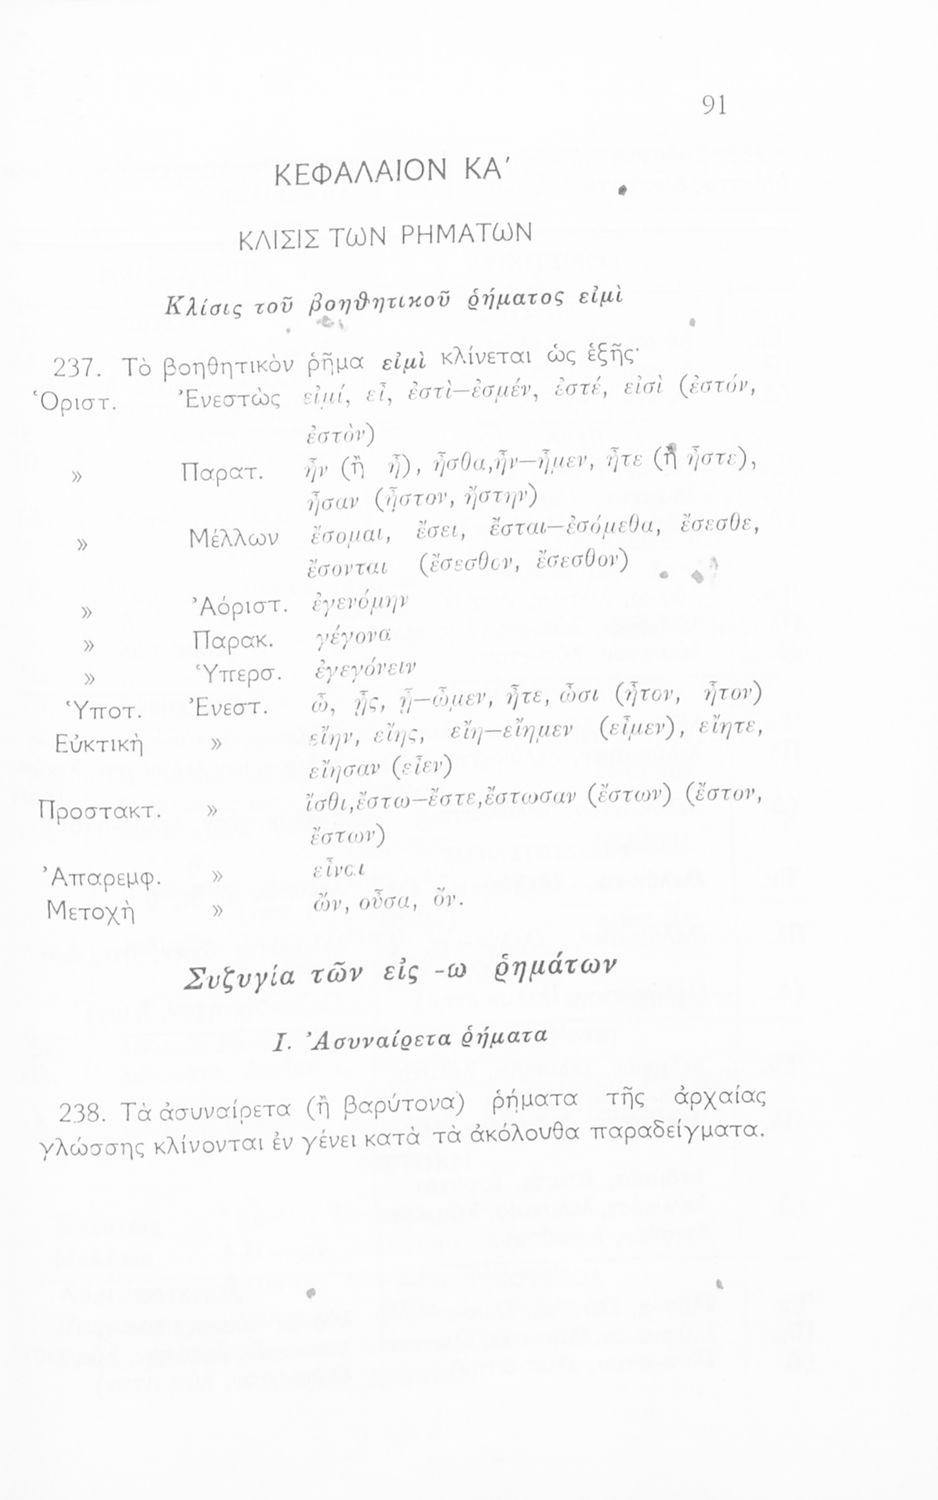 91
ΚΕΦΑΛΑΙΟΝ ΚΑ′
ΚΛΙΣΙΣ ΤΩΝ ΡΗΜΑΤΩΝ
Κλίσις τοῦ βοηθητικοῦ ῥήματος εἰμὶ
237. Τὸ βοηθητικὸν ῥῆμα εἰμὶ κλίνεται ὡς ἑξῆς·
Ὁριστ. Ἐνεστὼς εἰμί, εἶ, ἐστὶ—ἐσμέν, ἐστέ, εἰσὶ (ἐστόν,
ἐστὸν)
» Παρατ. ἦν (ἢ ἦ), ἦσθα,ἦν—ἦμεν, ἦτε (ἢ ἦστε),
ἦσαν (ἦστον, ἤστην)
» Μέλλων ἔσομαι, ἔσει, ἔσται—ἐσόμεθα, ἔσεσθε,
ἔσονται (ἔσεσθον, ἔσεσθον)
» Ἀόριστ. ἐγενόμην
» Παρακ. γέγονα
» Ὑπερσ. ἐγεγόνειν
Ὑποτ. Ἐνεστ. ὦ, ᾖς, ᾖ—ὦμεν, ἦτε, ὦσι (ἦτον, ἦτον)
Εὐκτικὴ » εἴην, εἴης, εἴη—εἴημεν (εἶμεν), εἴητε,
εἴησαν (εἶεν)
Προστακτ. » ἴσθι,ἔστω—ἔστε,ἔστωσαν (ἔστων) (ἔστον,
ἔστων)
Ἀπαρεμφ. » εἶναι
Μετοχὴ » ὤν, οὖσα, ὄν.
Συζυγία τῶν εἰς -ω ῥημάτων
I. Ἀσυναίρετα ῥήματα
238. Τὰ ἀσυναίρετα (ἢ βαρύτονα) ῥήματα τῆς ἀρχαίας
γλώσσης κλίνονται ἐν γένει κατὰ τὰ ἀκόλουθα παραδείγματα.